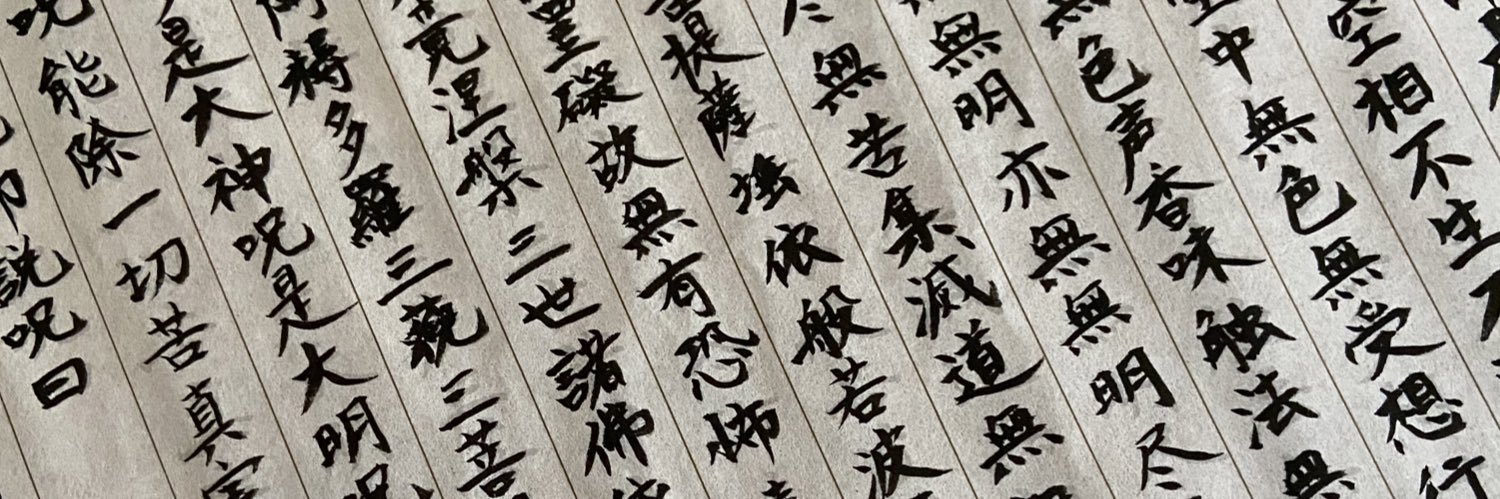 空相不生不
生中無色無受想行
無色声香味触法無
無明亦無無明尽
尽無苦集滅道無
提薩埵依般若波
罣礙故無有恐怖
究涅槃三世諸佛依
耨多羅三藐三菩
是大神呪是大明呪
呪能除一切苦真実
即説呪曰